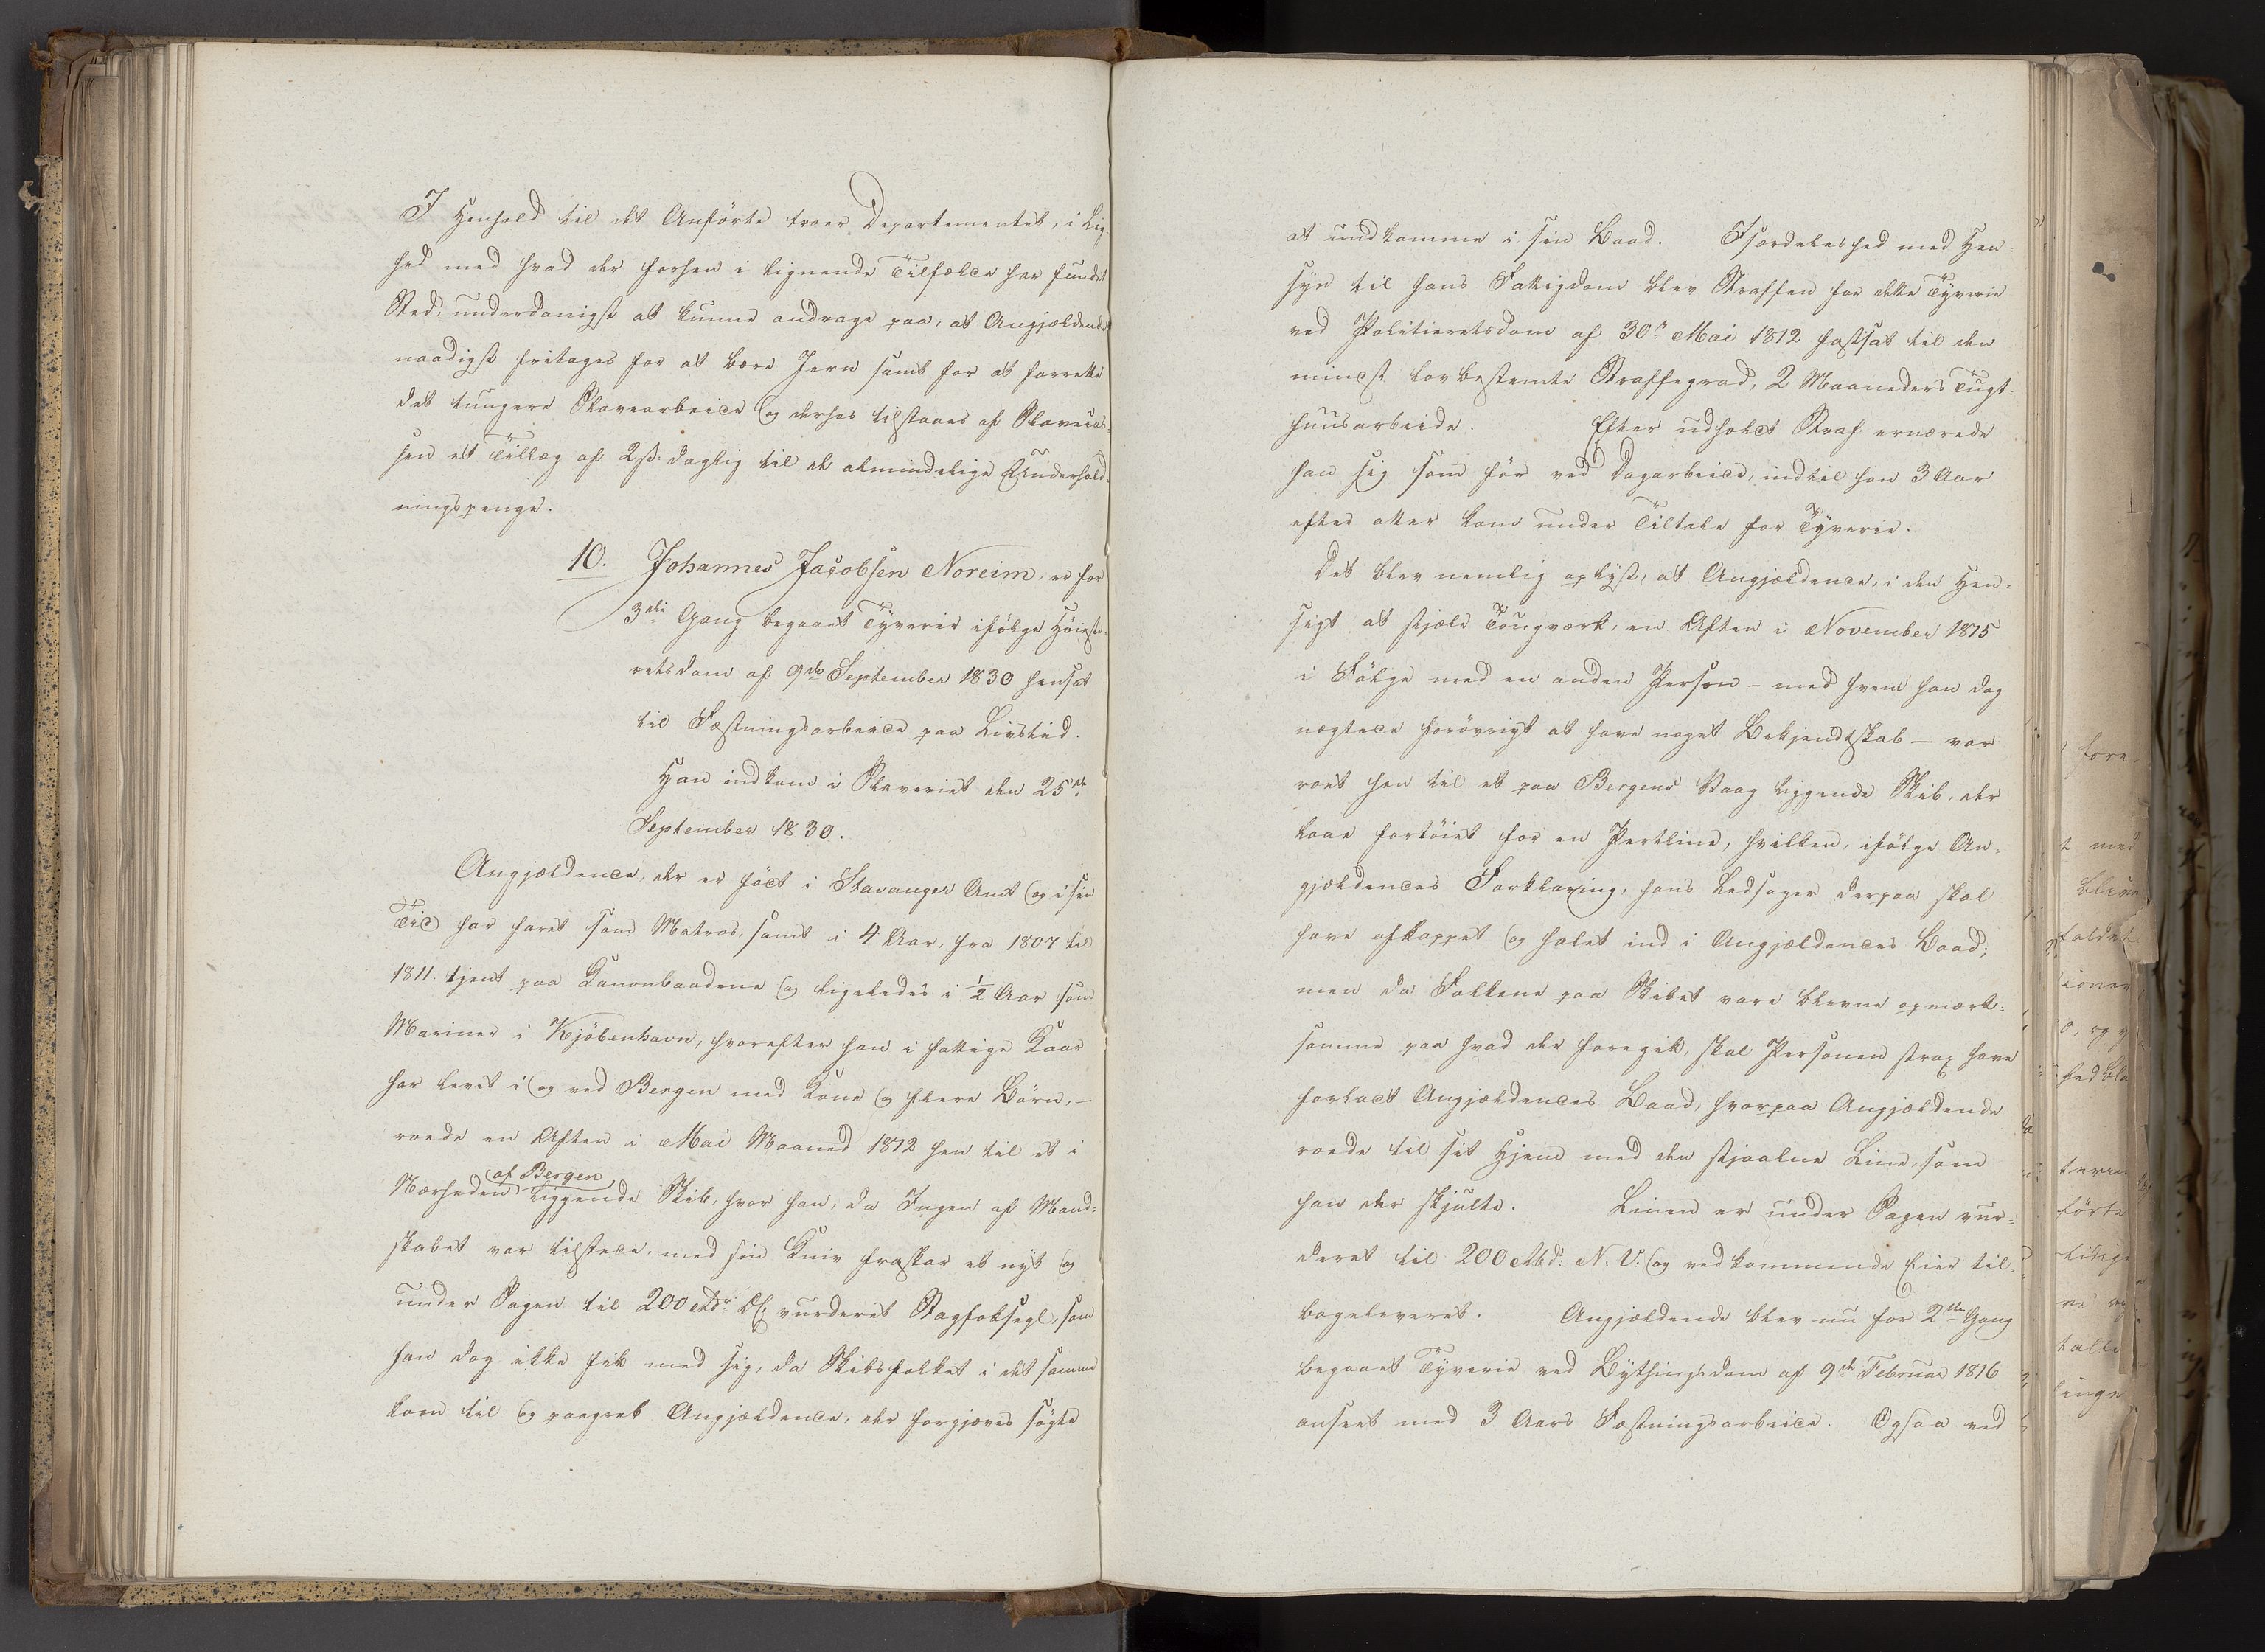 I Henhold til det Anförte troer Departementet, i Lig-
hed med hvad der forhen i lignende Tilfælde har fundet
Sted, underdanigst at kunne andrage paa, at Angjældende
naadigst fritages for at bære Jern samt for at forrette
det tungere Slavearbeide og derhos tilstaaes af Slavecas-
sen et Tillæg af 2 ß. daglig til de almindelige Underhold-
ningspenge.
10. Johannes Jacobsen Noreim, er for
3die Gang begaaet Tyverie ifölge Höieste-
retsdom af 9de September 1830 hensat
til Fæstningsarbeide paa Livstid.
Han indkom i Slaveriet den 25de
September 1830.
Angjældende, der er födt i Stavanger Amt og i sin
Tid har faret som Matros, samt i 4 Aar, fra 1807 til
1811 tjent paa Kanonbaadene og ligeledes i 1/2 Aar som
Mariner i Kjöbenhavn, hvorefter han i fattige Kaar
har levet i og ved Bergen med Kone og flere Börn, –
roede en Aften i Mai Maaned 1812 hen til et i
Nærheden af Bergen liggende Skib, hvor han, da Ingen af Mand-
skabet var tilstede, med sin Kniv fraskar et nyt og
under Sagen til 200 Rdr. vurderet Stagfoksegl, som
han dog ikke fik med sig, da Skibsfolket i det samme
kom til og paagreb Angjældende, der forgjæves sögte
at undkomme i sin Baad. Isærdeleshed med Hen-
syn til hans Fattigdom blev Straffen for dette Tyverie
ved Politieretsdom af 30te Mai 1812 fastsat til den
mindst lovbestemte Straffegrad, 2 Maaneders Tugt-
huusarbeide. Efter udholdt Straf ernærede
han sig som för ved Dagarbeide, indtil han 3 Aar
efter atter kom under Tiltale for Tyverie.
Det blev nemlig oplyst, at Angjældende, i den Hen-
sigt at stjæle Tougværk, en Aften i November 1815
i Fölge med en anden Person – med hvem han dog
nægtede forövrigt at have noget Bekjendtskab – var
roet hen til et paa Bergens Vaag liggende Skib, der
laae fortöiet for en Pertline, hvilken, ifölge An-
gjældendes Forklaring, hans Ledsager derpaa skal
have afkappet og halet ind i Angjældendes Baad;
men da Folkene paa Skibet vare blevne opmærk-
somme paa hvad der foregik, skal Personen strax have
forladt Angjældendes Baad, hvorpaa Angjældende
roede til sit Hjem med den stjaalne Line, som
han der skjulte. Linen er under Sagen vur-
deret til 200 Rbd: N. V. og vedkommende Eier til-
bageleveret. Angjældende blev nu for 2den Gang
begaaet Tyverie ved Bythingsdom af 9de Februar 1816
anseet med 3 Aars Fæstningsarbeide. Ogsaa ved